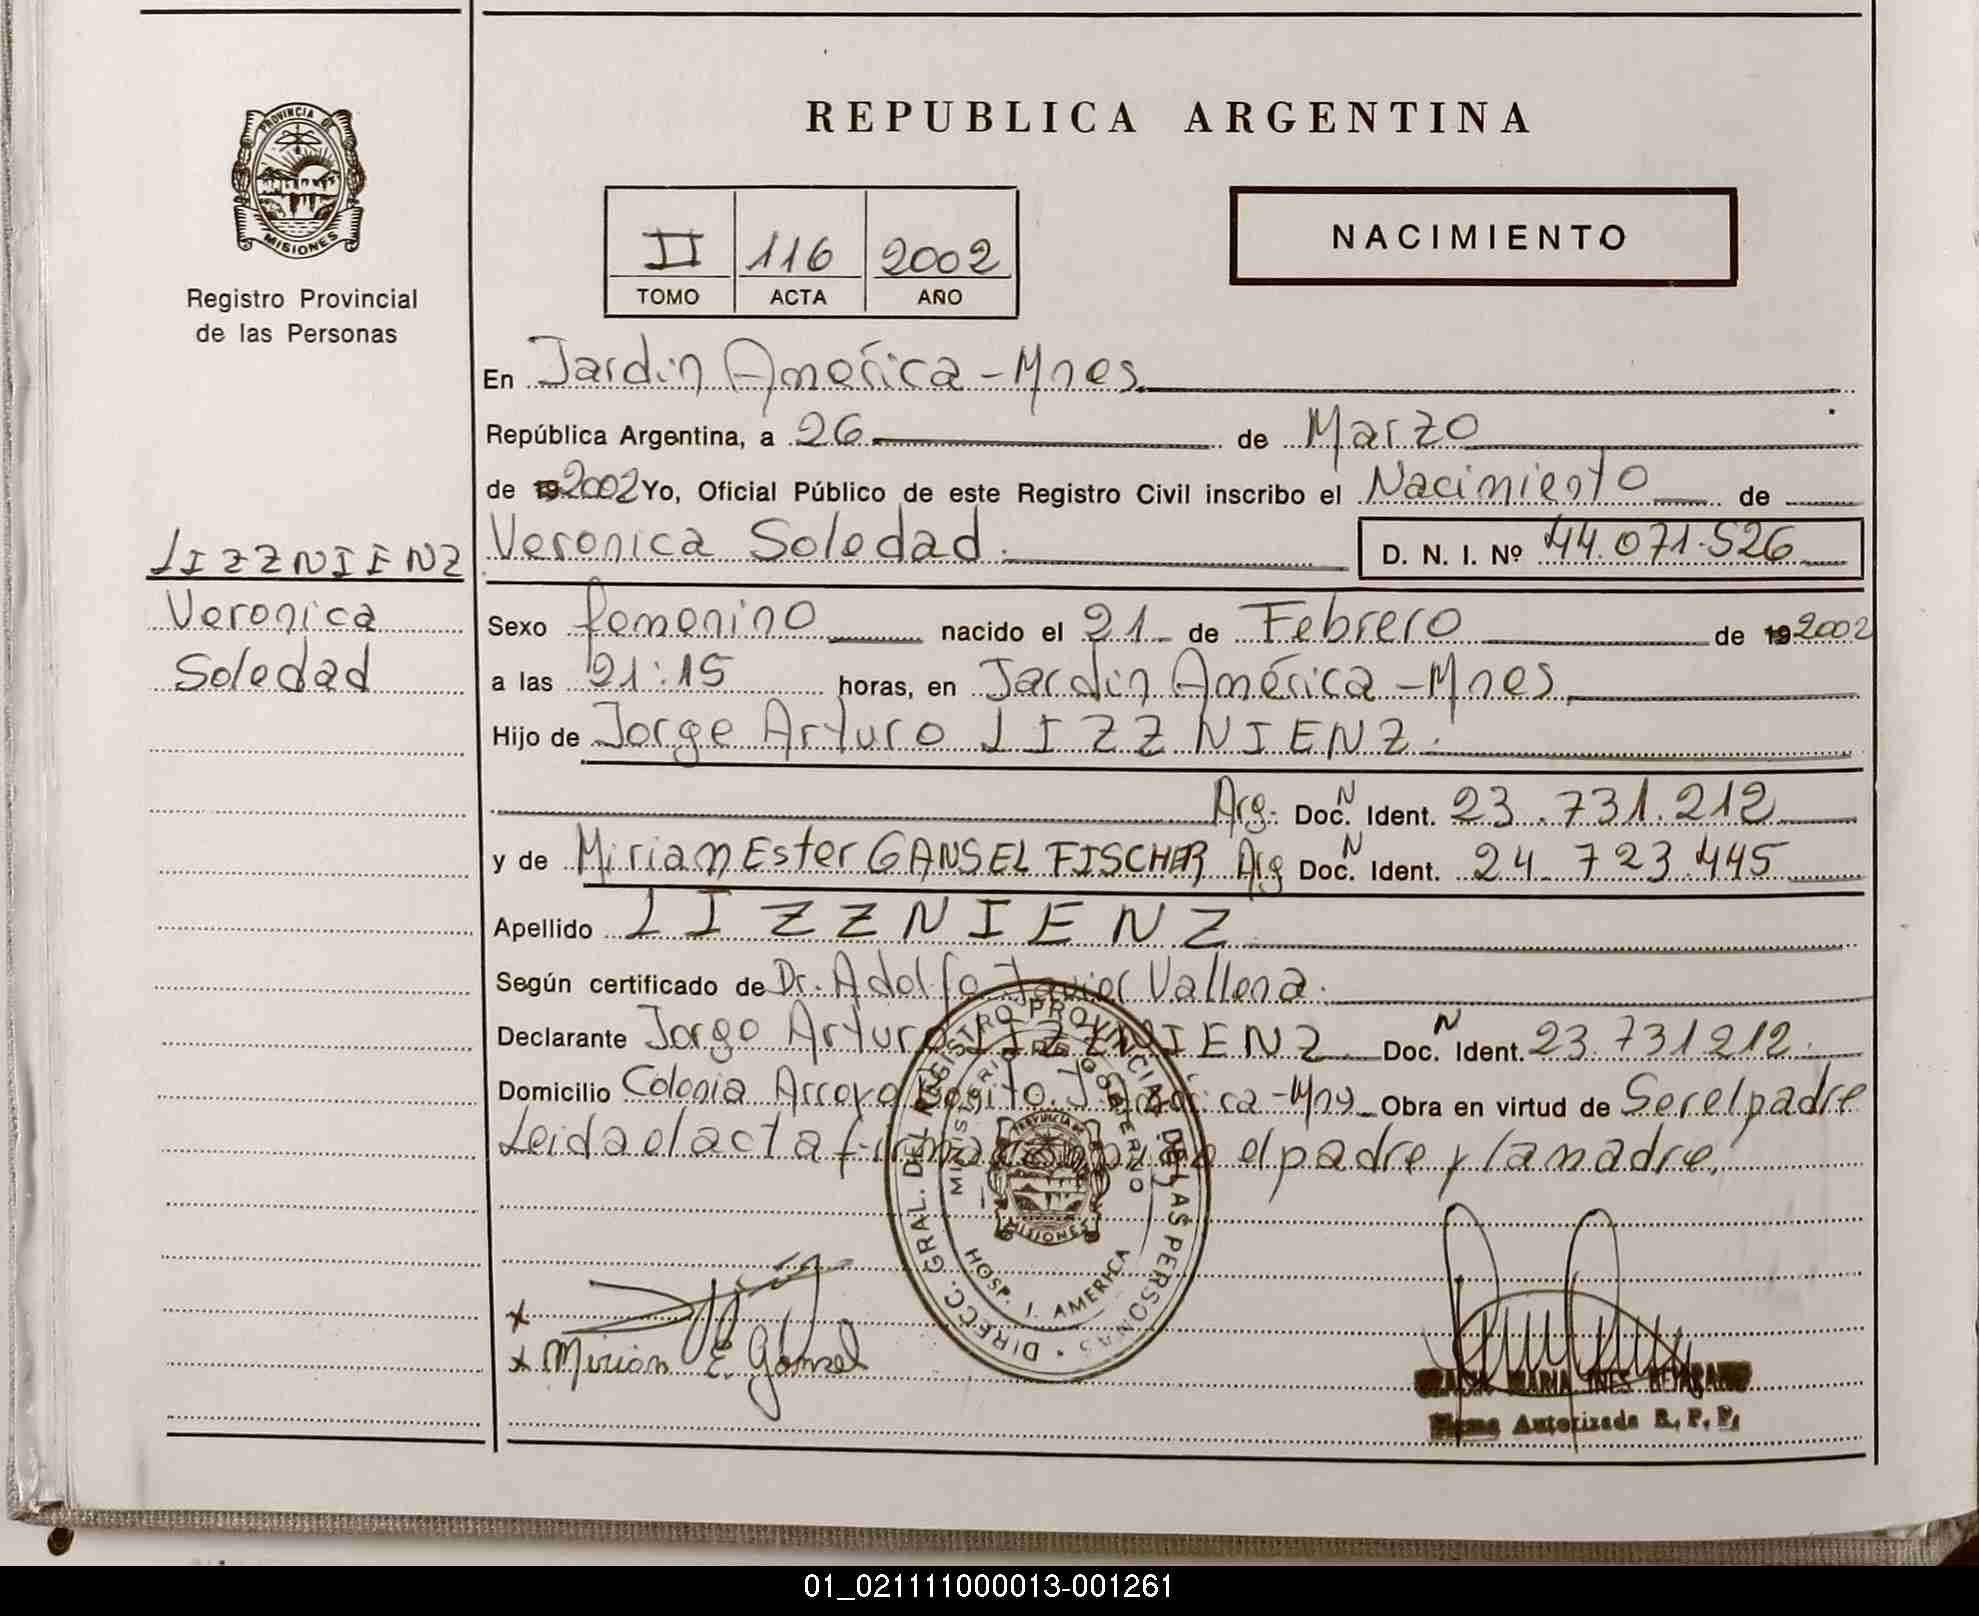 REPUBLICA ARGENTINA
PROVINCIA DE
MISIONES
Registro Provincial
de las Personas
II 116 2002
TOMO ACTA AÑO
NACIMIENTO
En Jardin América - Mnes
República Argentina, a 26 de Marzo
de 19 2002 Yo, Oficial Público de este Registro Civil inscribo el Nacimiento de
Veronica Soledad. D. N. I. Nº 44.071.526
LIZZNIENZ
Veronica
Soledad
Sexo femenino nacido el 21 de Febrero de 19 2002
a las 21:15 horas, en Jardin América - Mnes
Hijo de Jorge Arturo LIZZNIENZ.
Arg. Doc. N Ident. 23.731.212
y de Mirian Ester GANSEL FISCHER Arg Doc. N Ident. 24.723.445
Apellido LIZZNIENZ
Según certificado de Dr. Adolfo Javier Vallena.
Declarante Jorge Arturo LIZZNIENZ Doc. N Ident. 23.731.212.
Domicilio Colonia Arroyo J. América - Mns Obra en virtud de Ser el padre
Leida el acta el padre y la madre.
DIRECC. GRAL. DEL REGISTRO PROVINCIAL DE LAS PERSONAS
MINISTERIO DE GOBIERNO
PROVINCIA DE
MISIONES
HOSP. J. AMERICA
x
x Mirian E. Gansel
MARIA INES
Firma Autorizada R. P. P.
01_021111000013-001261